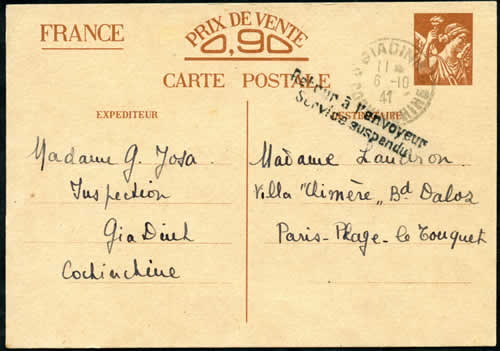 FRANCE
PRIX DE VENTE
0,90
CARTE POSTALE
EXPEDITEUR
DESTINATAIRE
GIADINH
11
6-10
41
COCHINCHINE
Retour à l'envoyeur
Service suspendu
Madame G. Josa
Inspection
Gia Dinh
Cochinchine
Madame Landron
Villa "Chimère" Bd Daloz
Paris-Plage-le Touquet